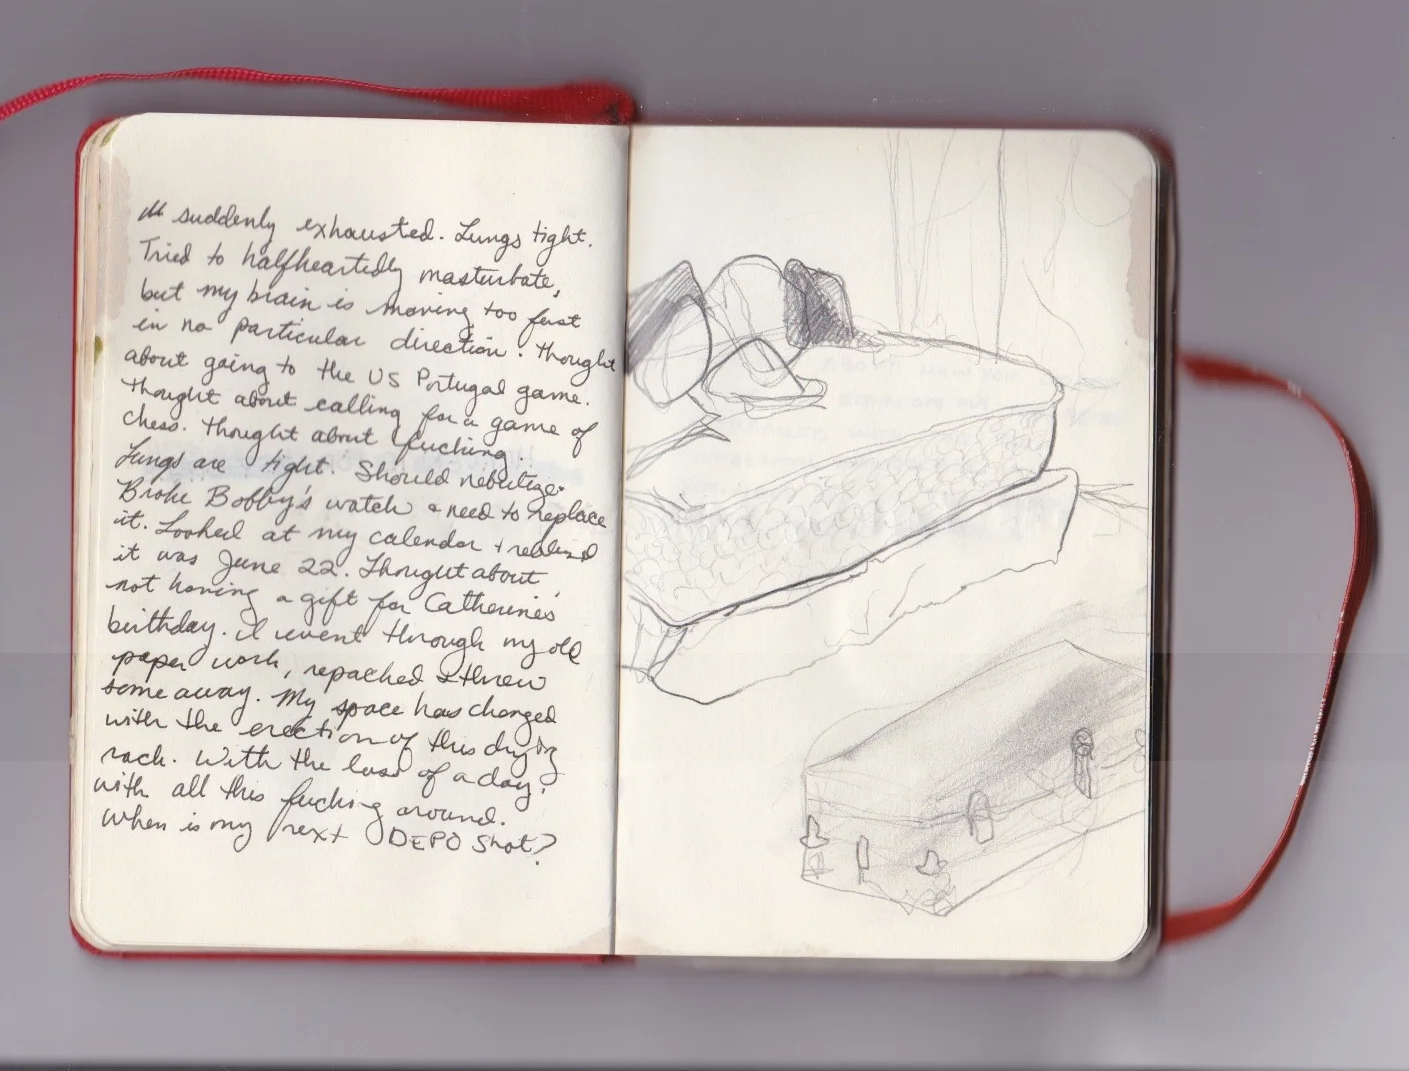 suddenly exhausted. Lungs tight.
Tried to halfheartedly masturbate,
but my brain is moving too fast
in no particular direction. Thought
about going to the US Portugal game.
Thought about calling for a game of
chess. Thought about fucking.
Lungs are tight. Should nebulize.
Broke Bobby's watch & need to replace
it. Looked at my calendar + realized
it was June 22. Thought about
not having a gift for Catherine's
birthday. I went through my old
paper work, repacked & threw
some away. My space has changed
with the erection of this drying
rack. With the loss of a day,
with all this fucking around.
When is my next DEPO shot?